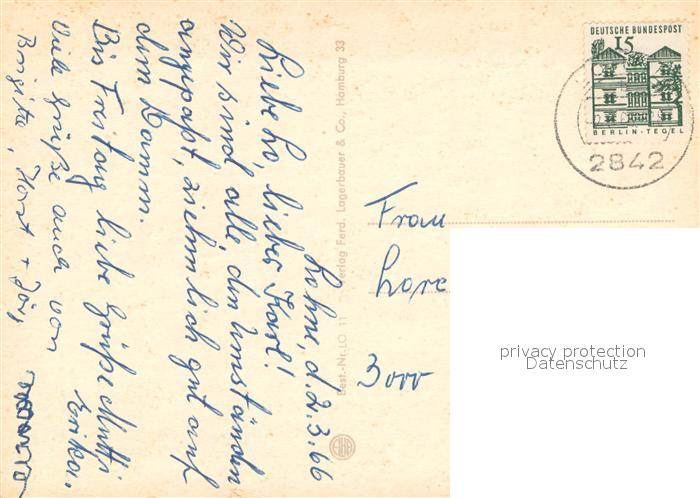 Lohne, d. 2.3.66
Liebe Lo, lieber Karl!
Wir sind alle, den Umständen
angepaßt, ziemlich gut auf
dem Damm.
Bis Freitag liebe Grüße Mutti
Erika.
Viele Grüße auch von
Brigitte, Horst + Jörg
Best.-Nr. LO 11
Verlag Ferd. Lagerbauer & Co., Hamburg 33
DEUTSCHE BUNDESPOST
15
BERLIN-TEGEL
2842
Frau
Lore
3000
privacy protection
Datenschutz